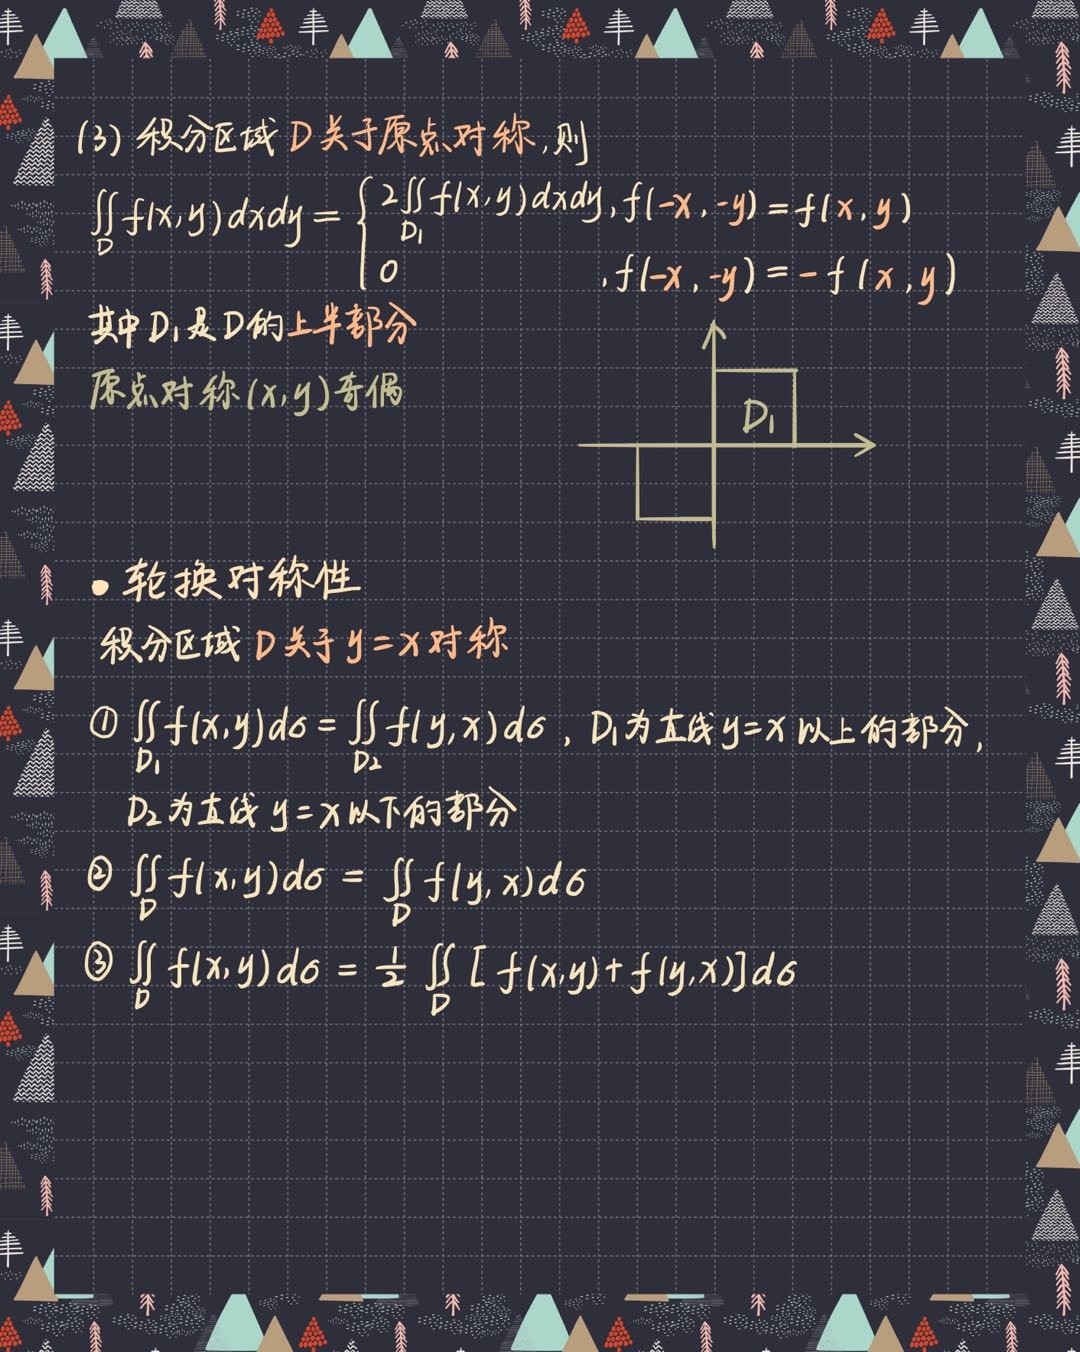 (3) 积分区域 D关于原点对称,则
∬_D f(x,y)dxdy = { 2∬_{D₁} f(x,y)dxdy, f(-x,-y)=f(x,y)
0 , f(-x,-y)=-f(x,y)
其中D₁是D的上半部分
原点对称(x,y)奇偶
D₁
• 轮换对称性
积分区域 D关于 y=x对称
① ∬_{D₁} f(x,y)dσ = ∬_{D₂} f(y,x)dσ , D₁为直线y=x以上的部分,
D₂为直线 y=x以下的部分
② ∬_D f(x,y)dσ = ∬_D f(y,x)dσ
③ ∬_D f(x,y)dσ = ½ ∬_D [f(x,y)+f(y,x)]dσ